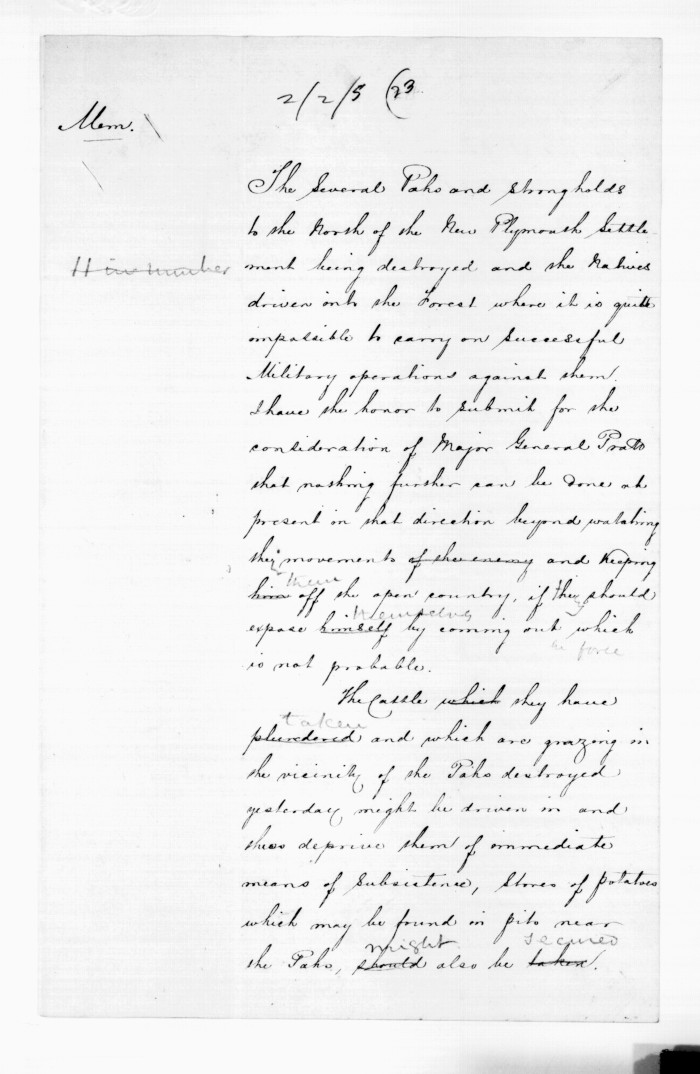 2/2/5 (23.
Mem.
The several Pahs and strongholds
to the North of the New Plymouth Settle-
ment being destroyed and the Natives
driven into the Forest where it is quite
impossible to carry on successful
Military operations against them.
I have the honor to submit for the
consideration of Major General Pratt
that nothing further can be done at
present in that direction beyond watching
their movements of the enemy and keeping
him them off the open country, if they should
expose himself themselves by coming out which
in force
is not probable.
The Cattle which they have
taken
plundered and which are grazing in
the vicinity of the Pahs destroyed
yesterday might be driven in and
thus deprive them of immediate
means of subsistence, Stores of potatoes
which may be found in pits near
might secured
the Pahs, should also be taken.